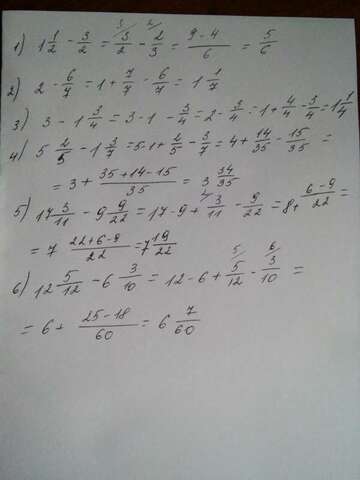 1) 1 1/2 - 3/2 = 3/2 - 2/3 = (9-4)/6 = 5/6
2) 2 - 6/7 = 1 + 7/7 - 6/7 = 1 1/7
3) 3 - 1 3/4 = 3 - 1 - 3/4 = 2 - 3/4 = 1 + 4/4 - 3/4 = 1 1/4
4) 5 2/5 - 1 3/7 = 5 - 1 + 2/5 - 3/7 = 4 + 14/35 - 15/35 =
= 3 + (35+14-15)/35 = 3 34/35
5) 17 3/11 - 9 9/22 = 17 - 9 + 3/11 - 9/22 = 8 + (6-9)/22 =
= 7 (22+6-9)/22 = 7 19/22
6) 12 5/12 - 6 3/10 = 12 - 6 + 5/12 - 3/10 =
= 6 + (25-18)/60 = 6 7/60